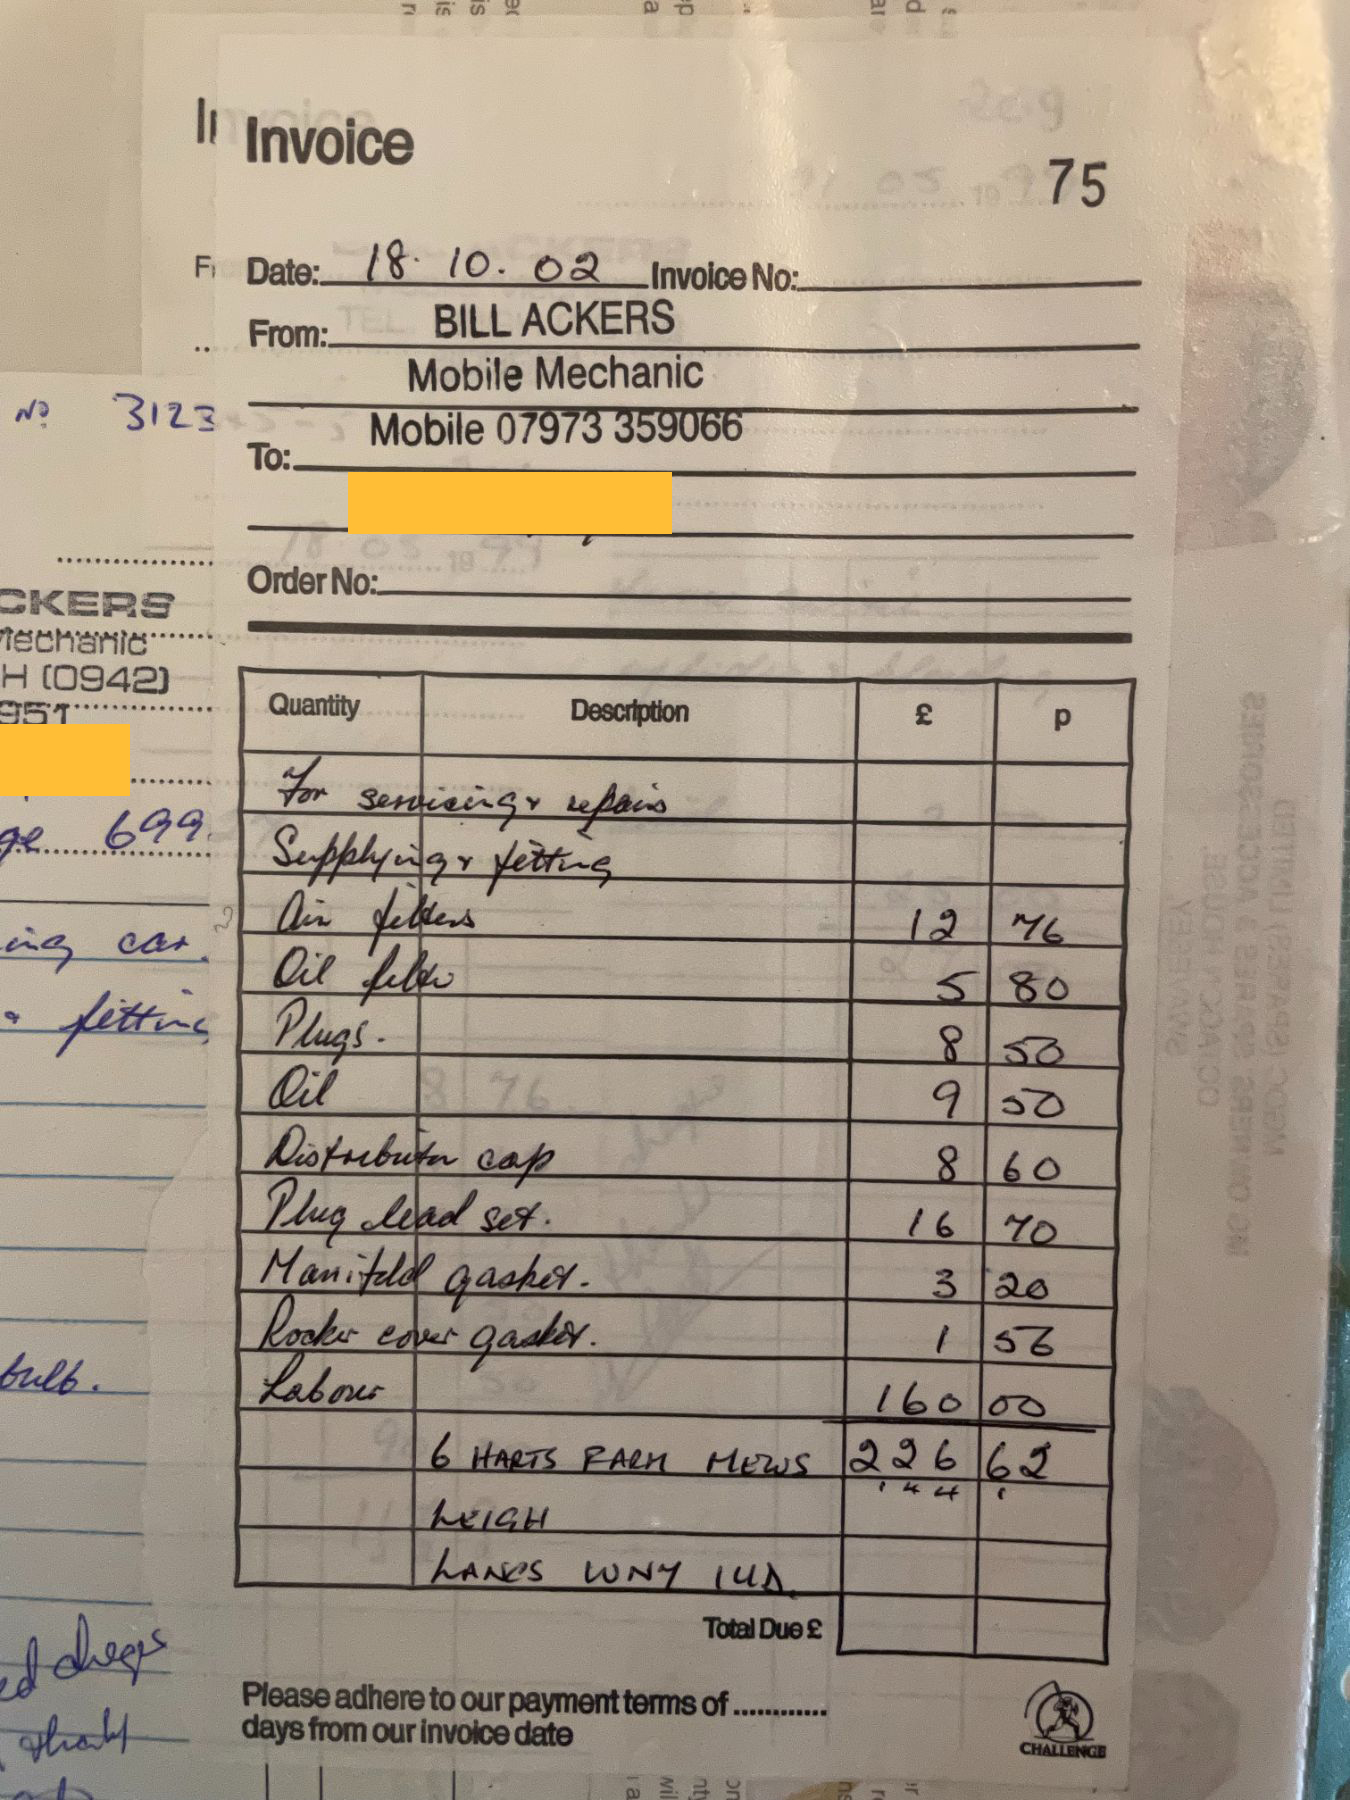 Invoice
75
Date: 18. 10. 02 Invoice No:
From: BILL ACKERS
Mobile Mechanic
Mobile 07973 359066
To:
Order No:
Quantity Description £ p
For servicing & repairs
Supplying & fitting
Air filters 12 76
Oil filter 5 80
Plugs. 8 50
Oil 9 50
Distributor cap 8 60
Plug lead set. 16 70
Manifold gasket. 3 20
Rocker cover gasket. 1 56
Labour 160 00
6 HARTS FARM MEWS 226 62
LEIGH
LANCS WN7
Total Due £
Please adhere to our payment terms of ............
days from our invoice date
CHALLENGE
No 3123
CKERS
Mechanic
H (0942)
951
ge 699.
ing car.
& fitting
bulb.